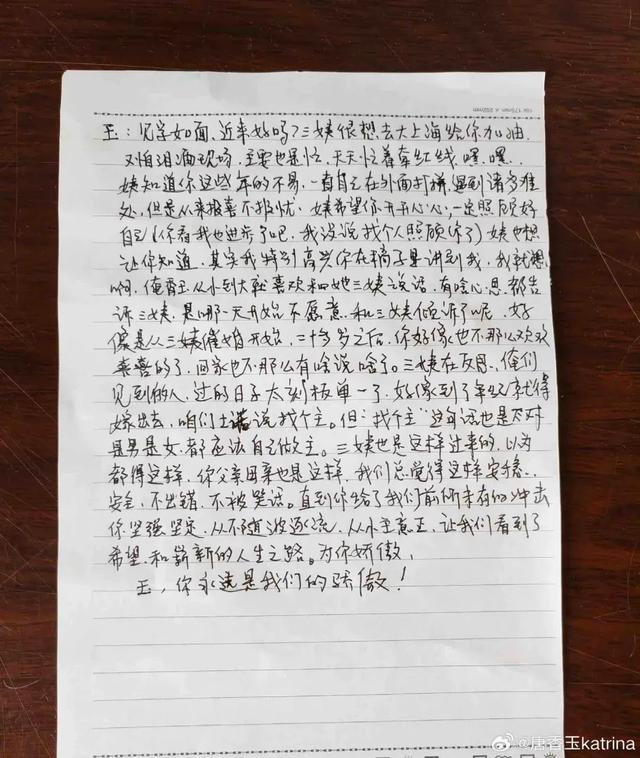 玉：见字如面，近来好吗？三姨很想去大上海给你加油，
又怕泪洒现场，主要也是忙，天天忙着牵红线，嘿，嘿，
姨知道你这些年的不易，一直自己在外面打拼，遇到诸多难
处，但是从来报喜不报忧，姨希望你开开心心，一定照顾好
自己（你看我也进步了吧，我没说找个人照顾你了）姨也想
让你知道，其实我特别高兴你在稿子里讲到我，我就想
啊，俺香玉从小到大就喜欢和她三姨说话，有啥心思都告
诉三姨，是哪一天开始不愿意和三姨倾诉了呢，好
像是从三姨催婚开始，二十多岁之后，你好像也不那么欢欢
喜喜的了，回家也不那么有啥说啥了。三姨在反思，俺们
见到的人，过的日子太刻板单一了，好像到了年纪就得
嫁出去，咱们土话说找个主。但"找个主"这句话也是不对
是男是女，都应该自己做主。三姨也是这样过来的，以为
都得这样，你父亲母亲也是这样，我们总觉得这样安稳、
安全，不出错，不被笑话。直到你给了我们前所未有的冲击
你坚强坚定，从不随波逐流，从小主意正，让我们看到了
希望和崭新的人生之路。为你骄傲，
玉，你永远是我们的骄傲！
@唐香玉katrina